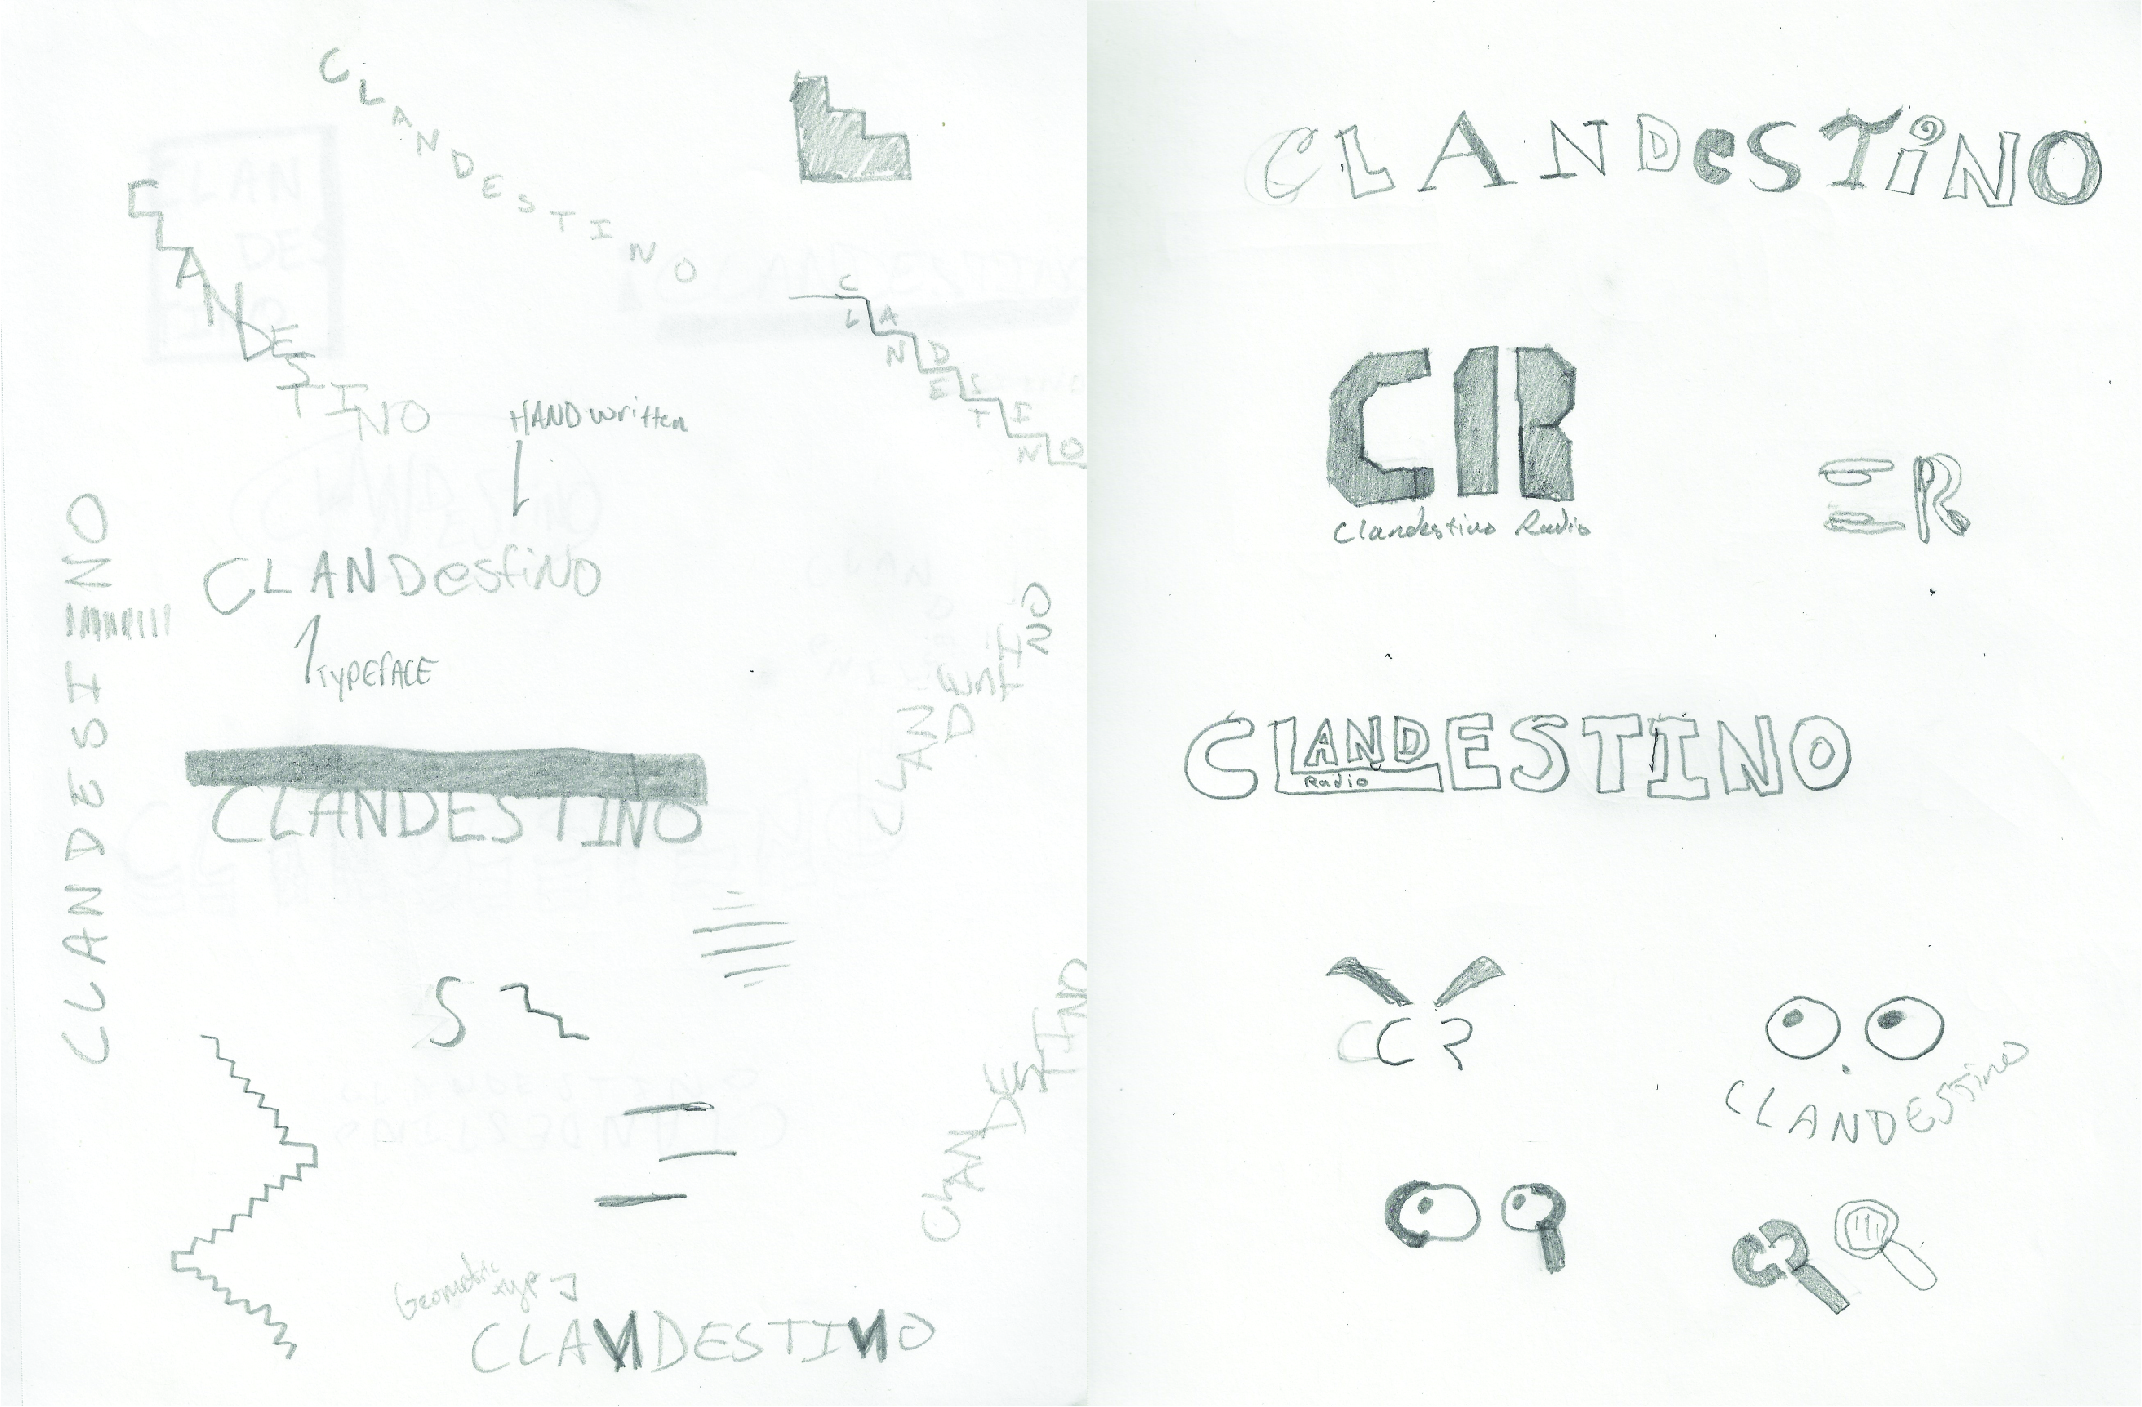 CLANDESTINO
CLANDESTINO
CLANDESTINO
HANDwritten
CLANDestiNO
TYPEFACE
CLANDESINO
CLANDESTINO
CLANDestiNO
S
CLANDESTINO
Geometric type
CLANDESTINO
CLANDeSTiNO
CR
Clandestino Radio
R
CLANDESTINO
Radio
CCR
CLANDESTino
CR